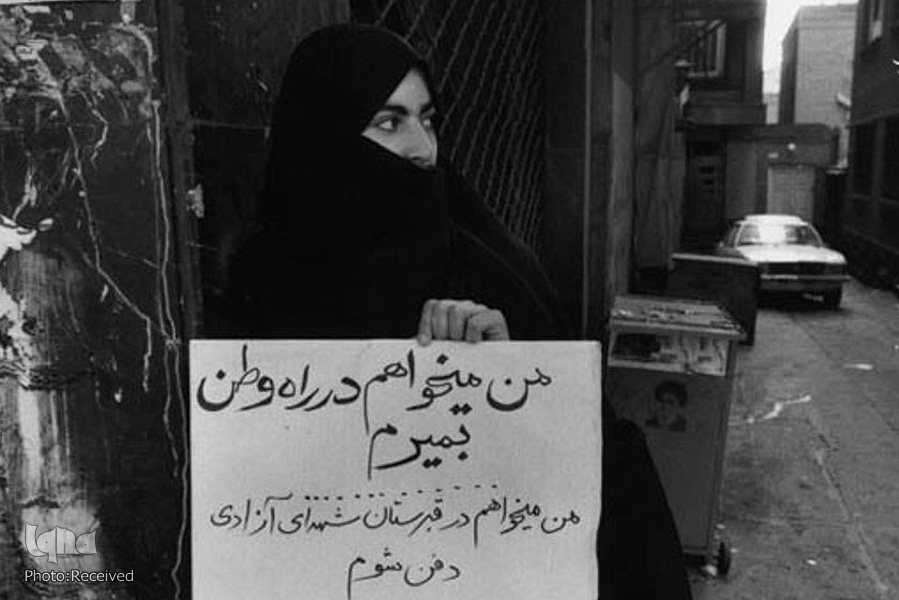 من میخواهم در راه وطن
بمیرم
من میخواهم در قبرستان شهدای آزادی
دفن شوم
iqna
Photo:Received